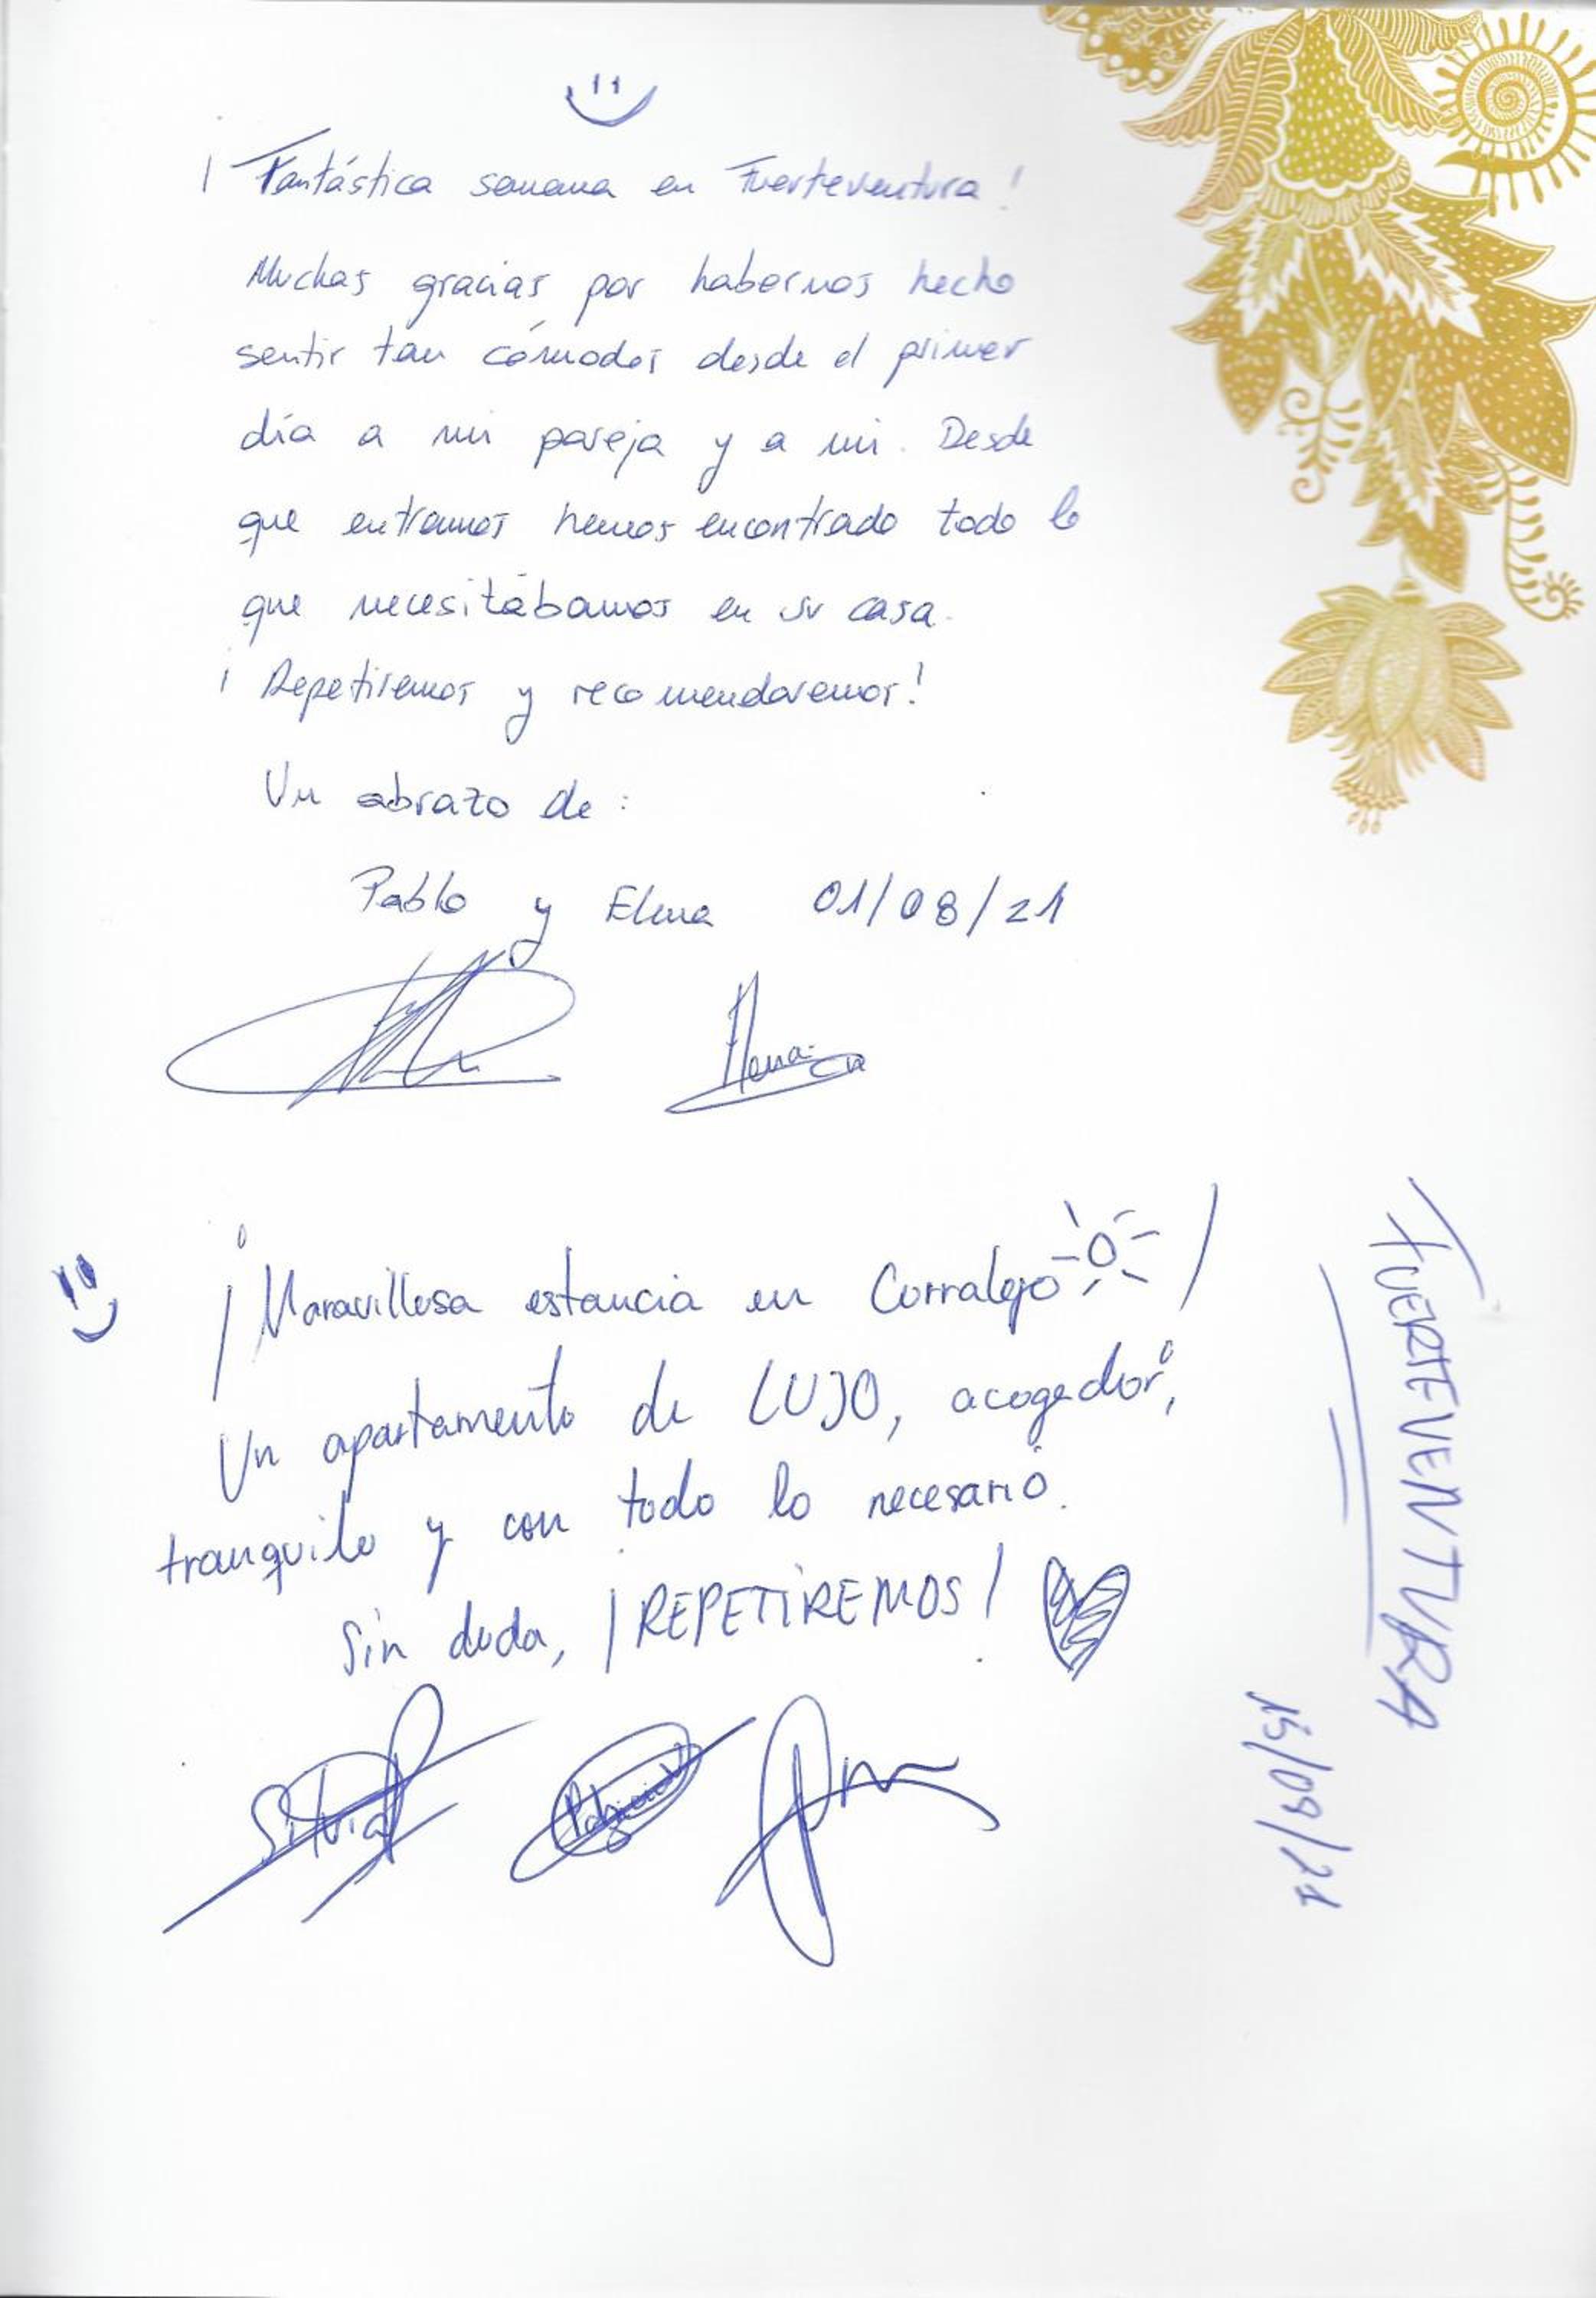 ¡Fantástica semana en Fuerteventura!
Muchas gracias por habernos hecho
sentir tan cómodos desde el primer
día a mi pareja y a mi. Desde
que entramos hemos encontrado todo lo
que necesitábamos en su casa.
¡Repetiremos y recomendaremos!
Un abrazo de:
Pablo y Elena 01/08/21
Elena
¡Maravillosa estancia en Corralejo!
Un apartamento de LUJO, acogedor,
tranquilo y con todo lo necesario.
Sin duda, ¡REPETIREMOS!
Silvia
FUERTEVENTURA